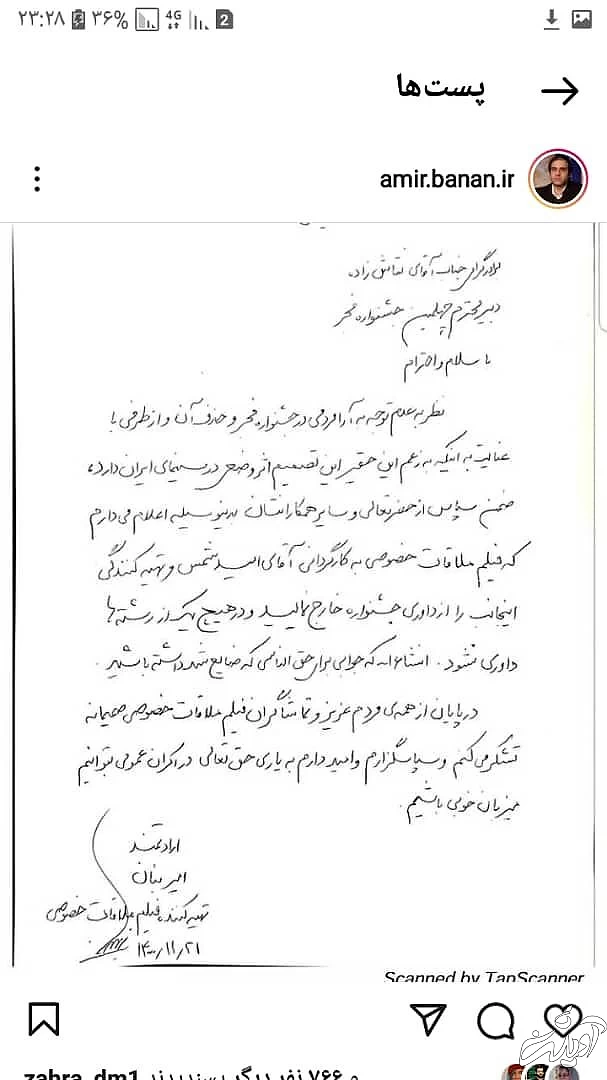 ۲۳:۲۸ ۳۶% 4G 2
پست‌ها
amir.banan.ir
برادر گرامی جناب آقای نقاش زاده
دبیر محترم چهلمین جشنواره فجر
با سلام و احترام
نظر به عدم توجه به آرا مردمی در جشنواره فجر و حذف آن و از طرفی با
عنایت به اینکه به زعم این حقیر این تصمیم اثر وضعی در سینمای ایران دارد،
ضمن سپاس از حضرتعالی و سایر همکارانتان بدینوسیله اعلام می دارم
که فیلم ملاقات خصوصی به کارگردانی آقای امید شمس و تهیه کنندگی
اینجانب را از داوری جشنواره خارج نمائید و در هیچ یک از رشته ها
داوری نشود. انشاءاله که جوابی برای حق الناسی که ضایع شد داشته باشید.
در پایان از همه ی مردم عزیز و تماشاگران فیلم ملاقات خصوصی صمیمانه
تشکر می کنم و سپاسگزارم و امید دارم به یاری حق تعالی در اکران عمومی بتوانیم
میزبان خوبی باشیم.
ارادتمند
امیر بنان
تهیه کننده فیلم ملاقات خصوصی
۱۴۰۰/۱۱/۲۱
Scanned by TapScanner
zahra_dm1 و ۷۶۶ نفر دیگر پسندیدند